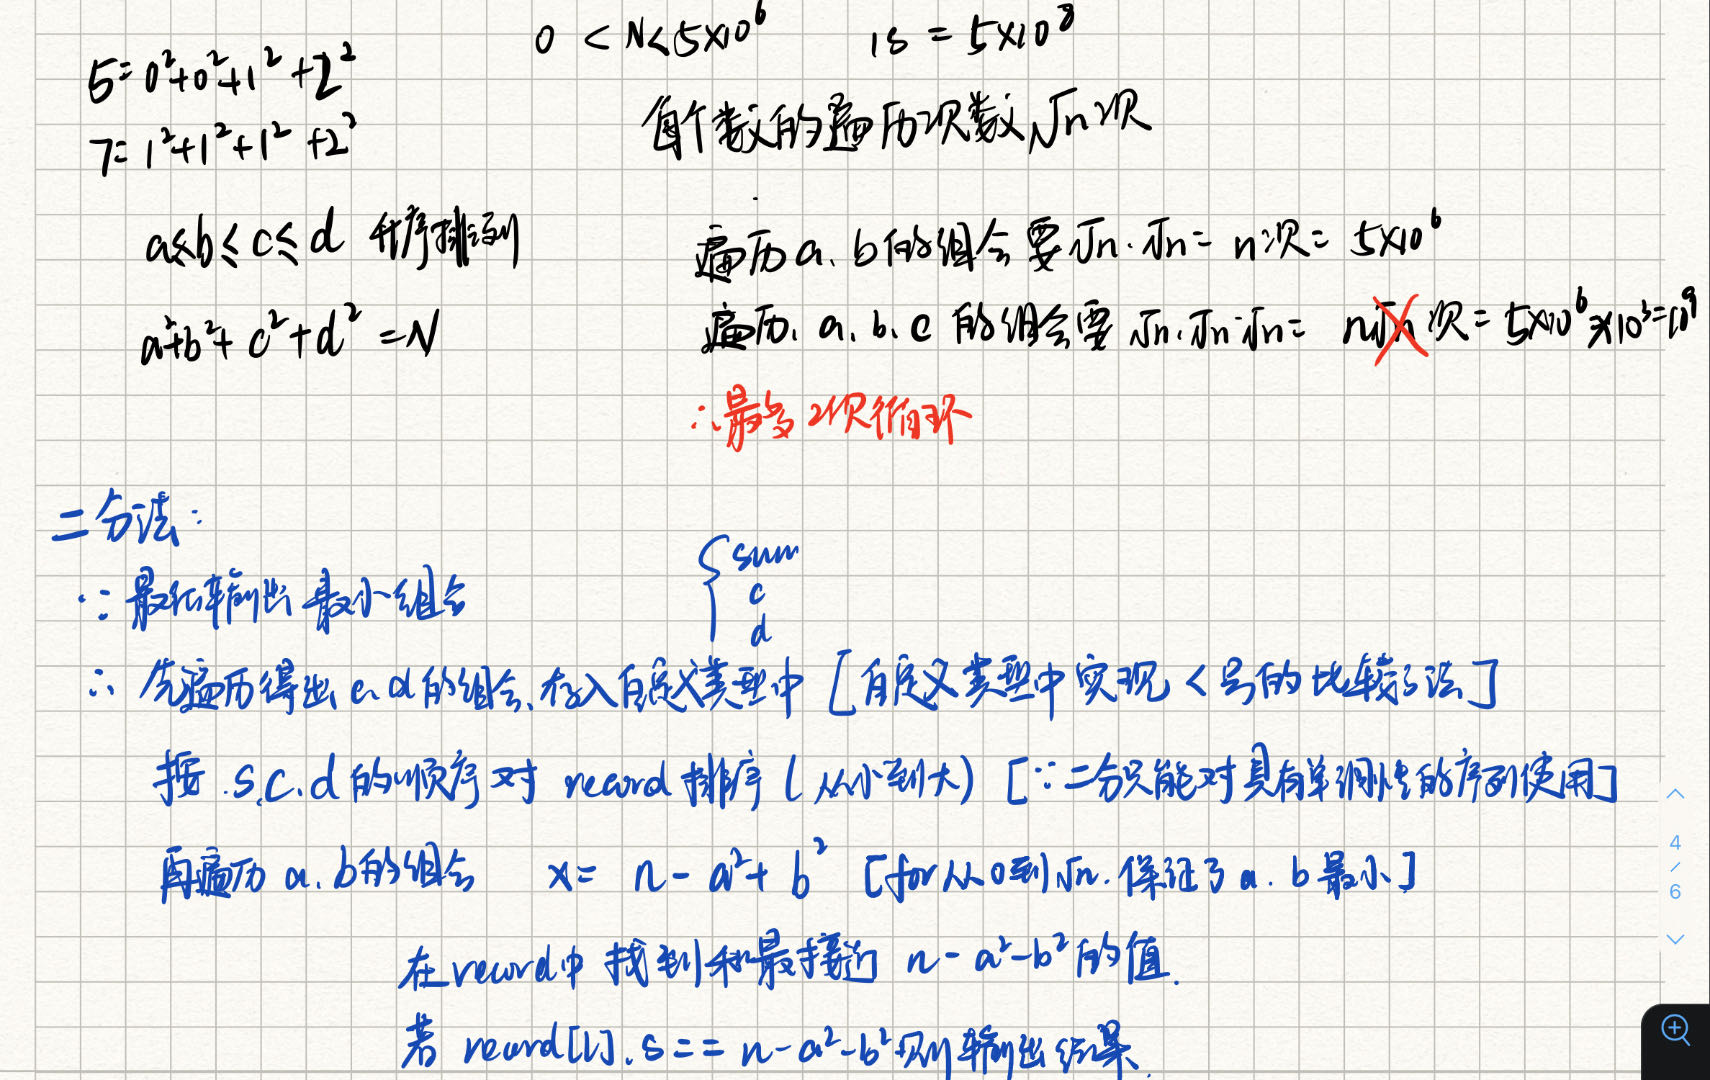 0 < N < 5×10⁶ 1s = 5×10⁸
5 = 0²+0²+1²+2²
7 = 1²+1²+1²+2²
每个数的遍历次数√n次
a≤b≤c≤d 升序排列
遍历a、b的组合要√n·√n = n次 = 5×10⁶
a²+b²+c²+d² = N
遍历、a、b、c的组合要√n·√n·√n = n√n次 = 5×10⁶×10³=10⁹
∴最多2次循环
二分法:
{sum
c
d
∵最后输出最小组合
∴先遍历得出c、d的组合、存入自定义类型中 [自定义类型中实现<号的比较方法]
按.s.c.d的顺序对record排序(从小到大) [∵二分只能对具有单调性的序列使用]
再遍历a、b的组合 x = n - a² + b² [for从0到√n.保证了a.b最小]
在record中找到和最接近 n-a²-b²的值.
若record[l].s == n-a²-b²则输出结果.
4
/
6